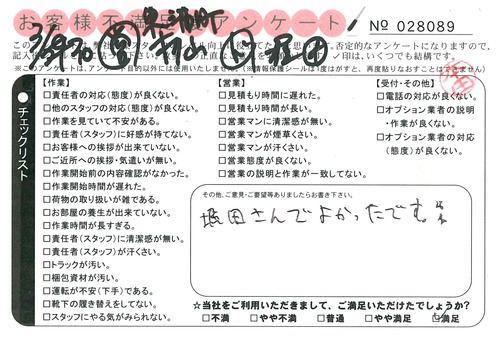 お客様不満足度アンケート
No 028089
【作業】
□責任者の対応(態度)が良くない。
□他のスタッフの対応(態度)が良くない。
□作業を見ていて不安がある。
□責任者(スタッフ)に好感が持てない。
□お客様への挨拶が出来ていない。
□ご近所への挨拶・気遣いが無い。
□作業開始前の内容確認がなかった。
□作業開始時間が遅れた。
□荷物の取り扱いが雑である。
□お部屋の養生が出来ていない。
□作業時間が長すぎる。
□責任者(スタッフ)に清潔感が無い。
□責任者(スタッフ)が汗くさい。
□トラックが汚い。
□梱包資材が汚い。
□運転が不安(下手)である。
□靴下の履き替えをしてない。
□スタッフにやる気がみられない。
【営業】
□見積もり時間に遅れた。
□見積もり時間が長い。
□営業マンに清潔感が無い。
□営業マンが煙草くさい。
□営業マンが汗くさい。
□営業態度が良くない。
□営業の説明と作業が一致してない。
【受付・その他】
□電話の対応が良くない。
□オプション業者の説明
・作業が良くない。
□オプション業者の対応
(態度)が良くない。
●チェックリスト
その他、ご意見・ご要望等ありましたらお書き下さい。
堀田さんでよかったです。
☆当社をご利用いただきまして、ご満足いただけたでしょうか?
□不満 □やや不満 □普通 □やや満足 □満足